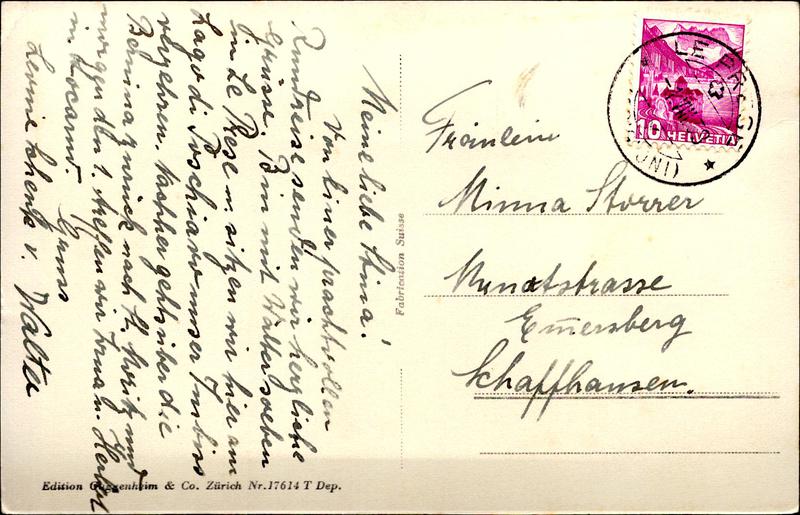 Meine liebe Mina!
Von einer prachtvollen
Rundreise senden wir herzliche
Grüsse. Bin mit Walter soeben
in Le Prese u. sitzen wir hier am
Lago di Poschiavo unser Imbiss
verzehren. Nachher geht's über die
Bernina zurück nach St. Moritz und
morgen den 1. treffen wir Erna u. Herbert
in Locarno. Gruss
Schenk v. Walter
Fabrication Suisse
Edition Guggenheim & Co. Zürich Nr. 17614 T Dep.
LE PRESE
10 HELVETIA
Fräulein
Minna Storrer
Munotstrasse
Emmersberg
Schaffhausen.